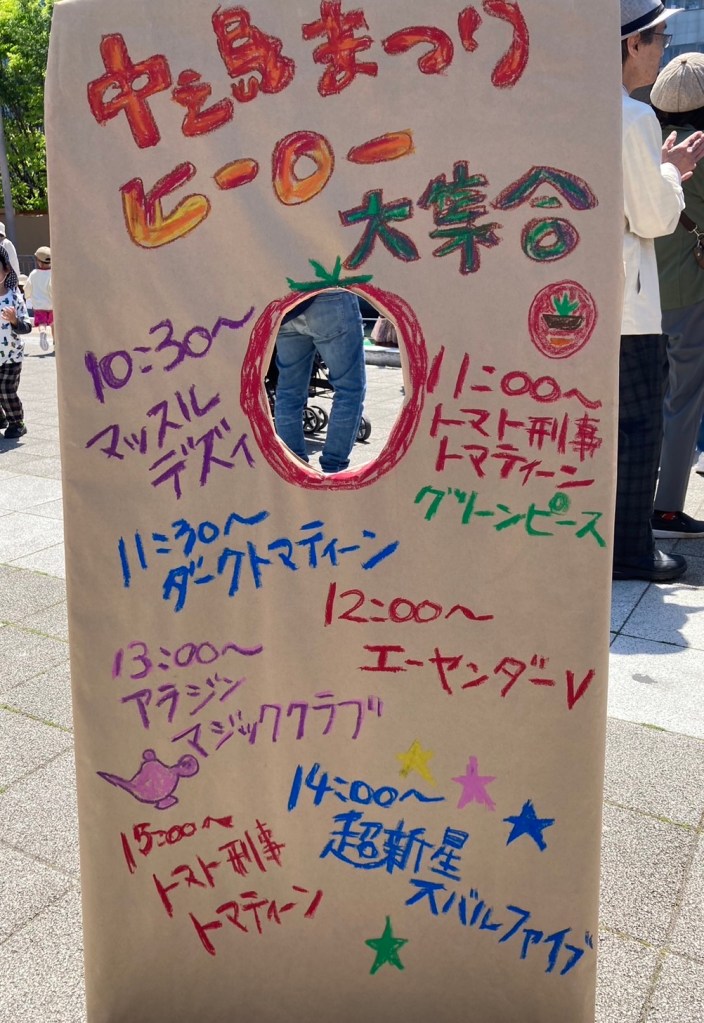 中之島まつり
ヒーロー
大集合
10:30～
マッスル
デズィ
11:00～
トマト刑事
トマティーン
グリーンピース
11:30～
ダークトマティーン
12:00～
エーヤンダーV
13:00～
アラジン
マジッククラブ
14:00～
超新星
スバルファイブ
15:00～
トマト刑事
トマティーン